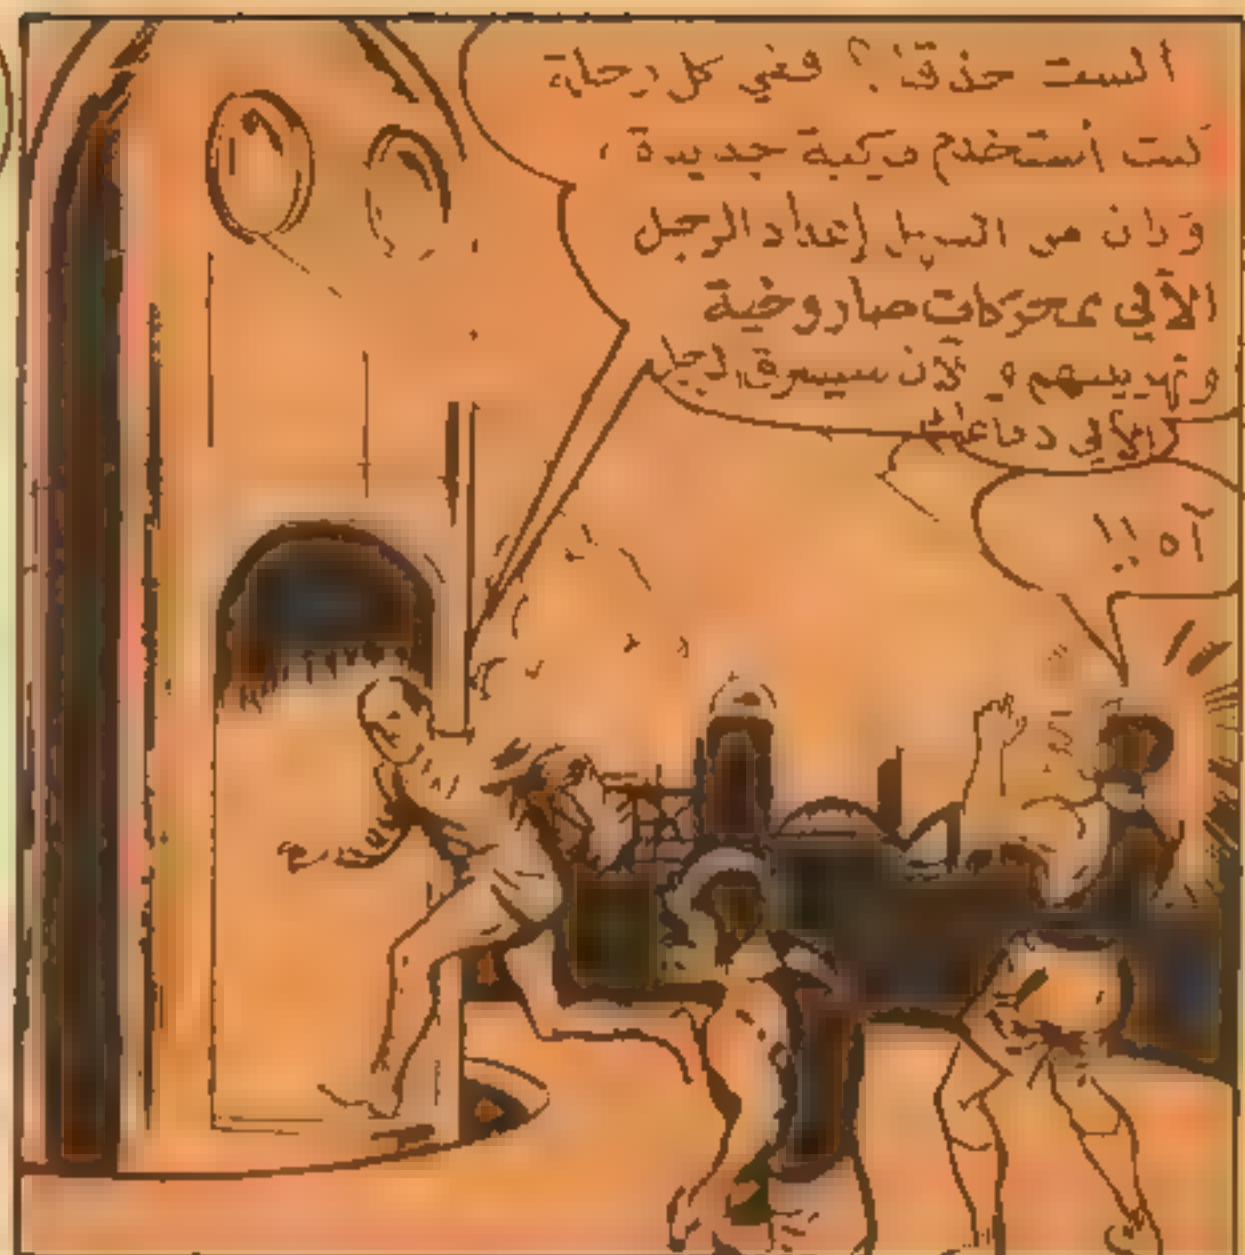 ألست حذقا؟ ففي كل رحلة
كنت أستخدم مركبة جديدة،
وكان من السهل إعداد الرجل
الآلي بمحركات صاروخية
وتهريبهم و الآن سيسرق الرجل
الآلي دماغك
آه !!